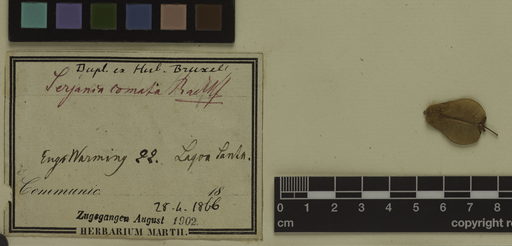 Dupl. ex Herb. Bruxell.
Serjania comata Radlkf
Eug. Warming 22. Lagoa Santa.
Communic. 18
28-4. 1866
Zugegangen August 1902.
HERBARIUM MARTII.
0 1 2 3 4 5 6 7 8
cm copyright